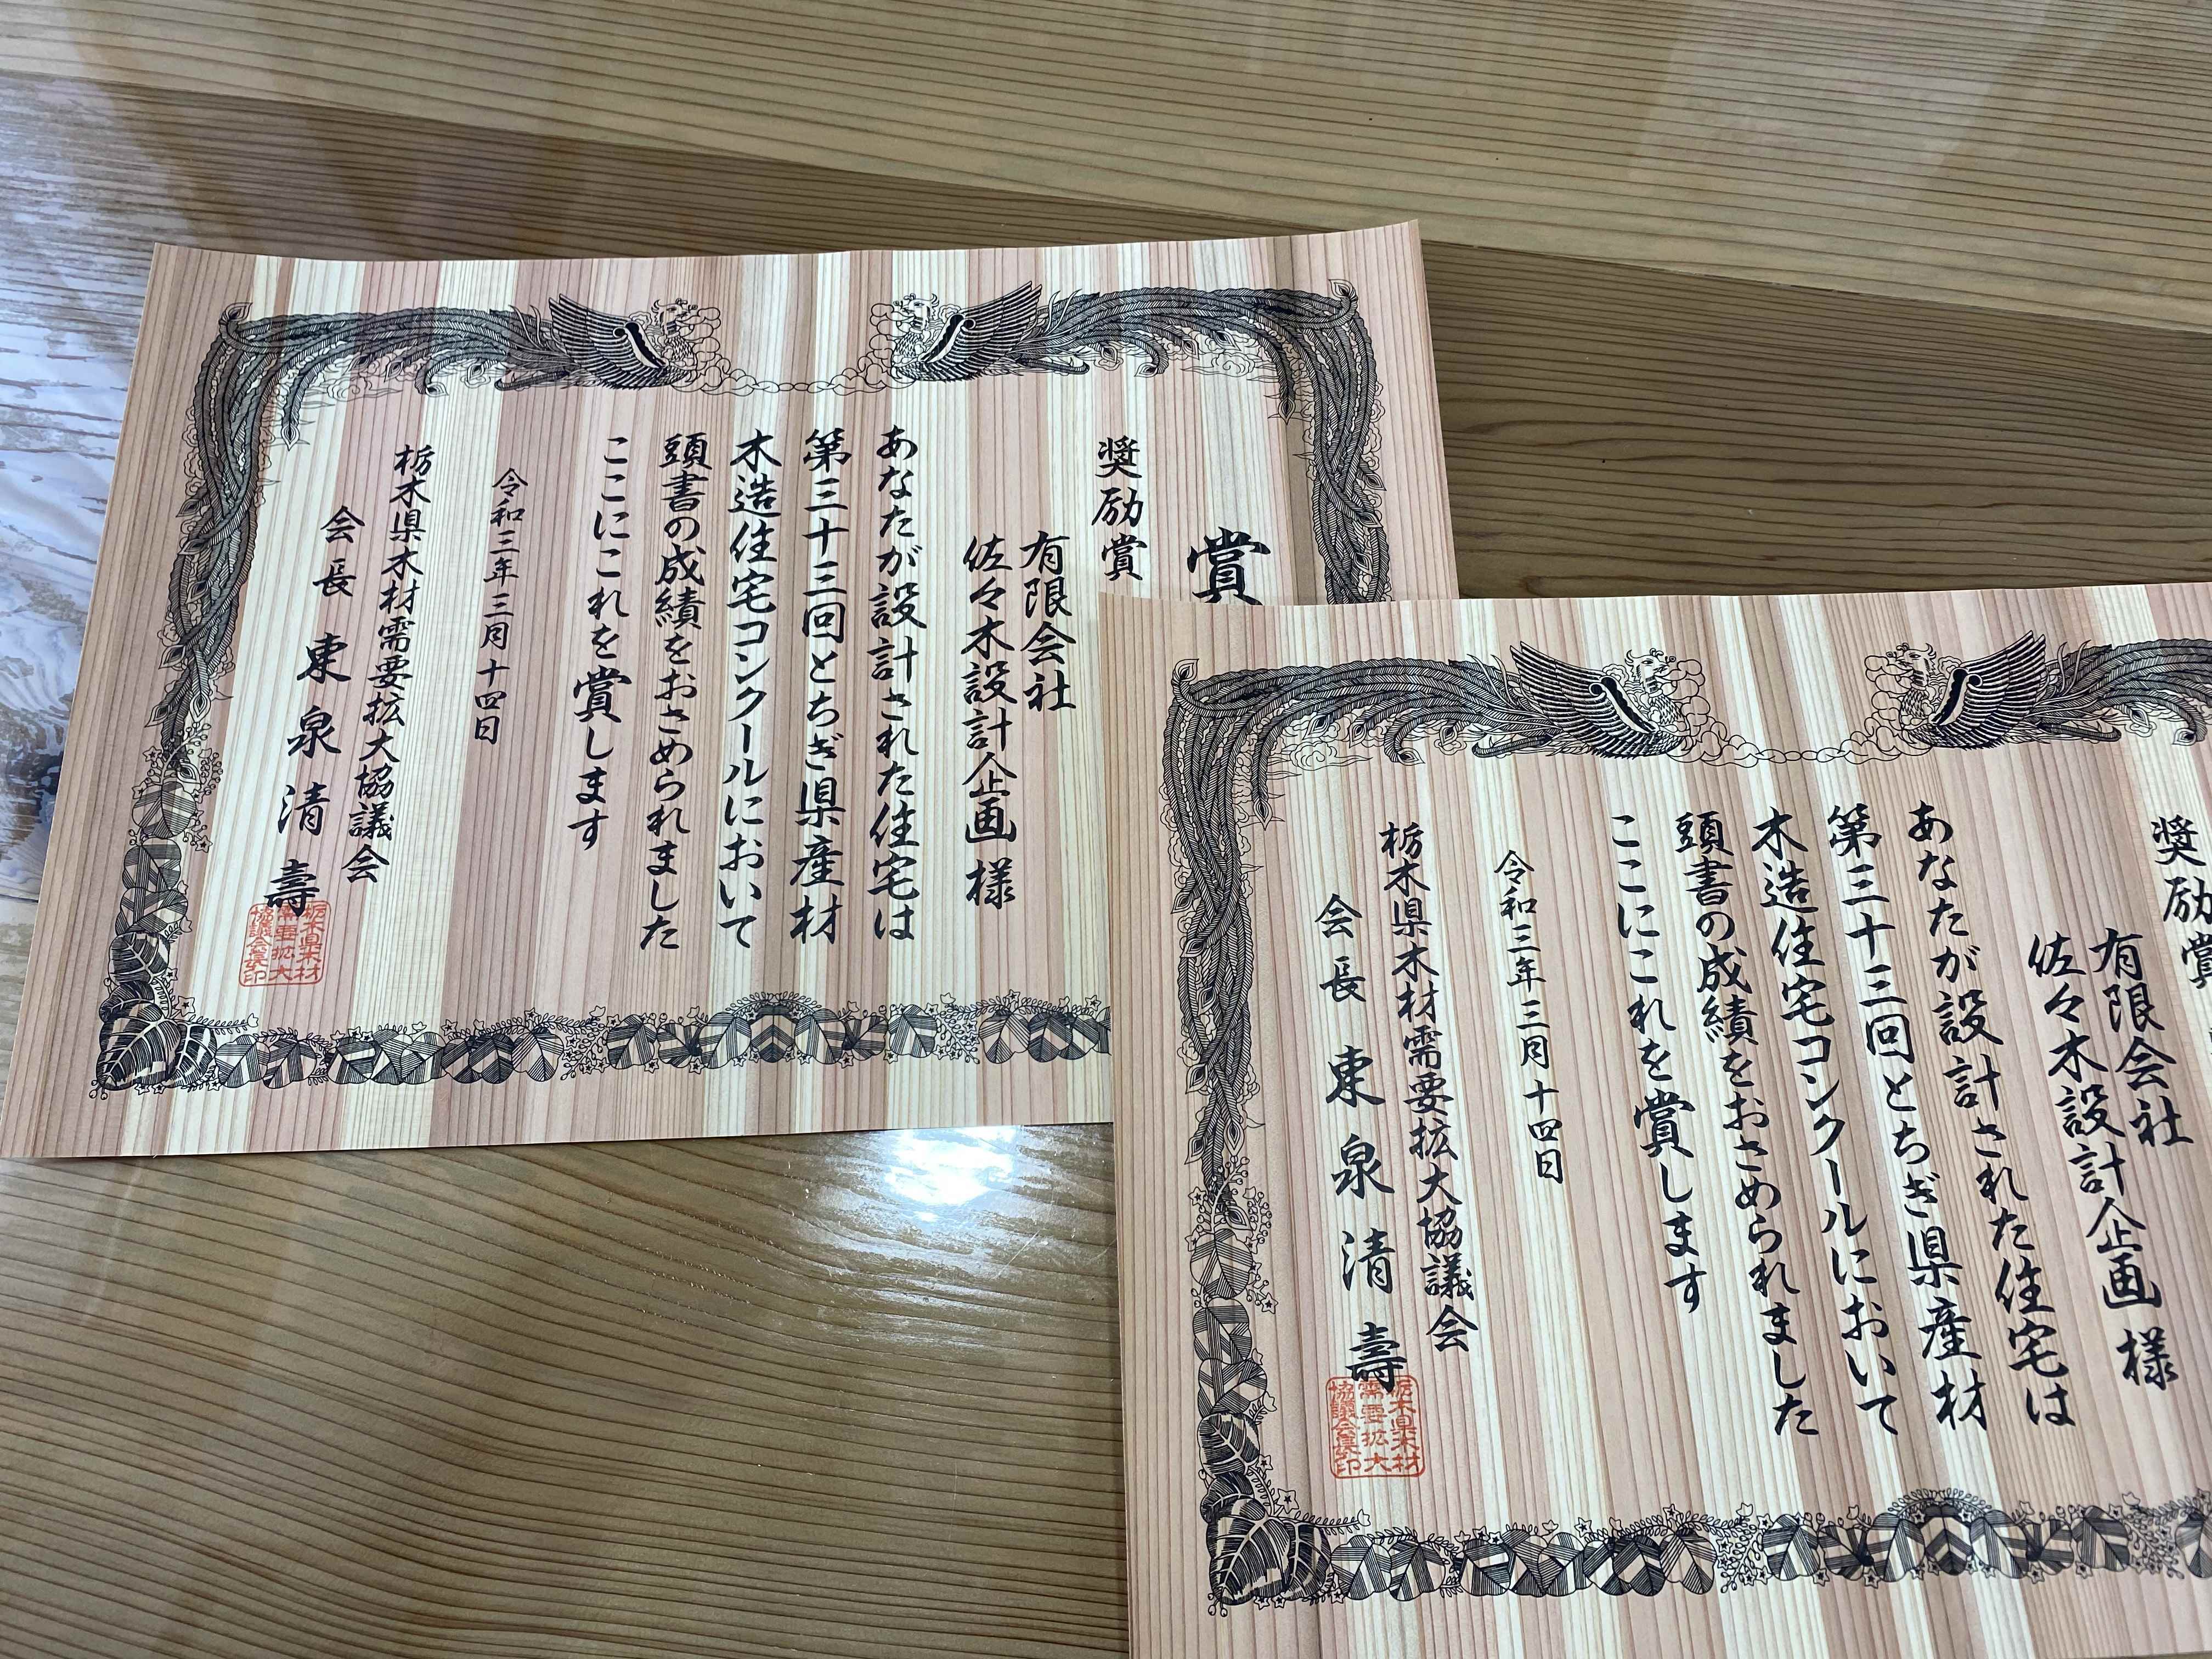 賞
奨励賞
有限会社
佐々木設計企画 様
あなたが設計された住宅は
第三十三回とちぎ県産材
木造住宅コンクールにおいて
頭書の成績をおさめられました
ここにこれを賞します
令和三年三月十四日
栃木県木材需要拡大協議会
会長 東泉清壽
栃木県木材
需要拡大
協議会長印
奨励賞
有限会社
佐々木設計企画 様
あなたが設計された住宅は
第三十三回とちぎ県産材
木造住宅コンクールにおいて
頭書の成績をおさめられました
ここにこれを賞します
令和三年三月十四日
栃木県木材需要拡大協議会
会長 東泉清壽
栃木県木材
需要拡大
協議会長印